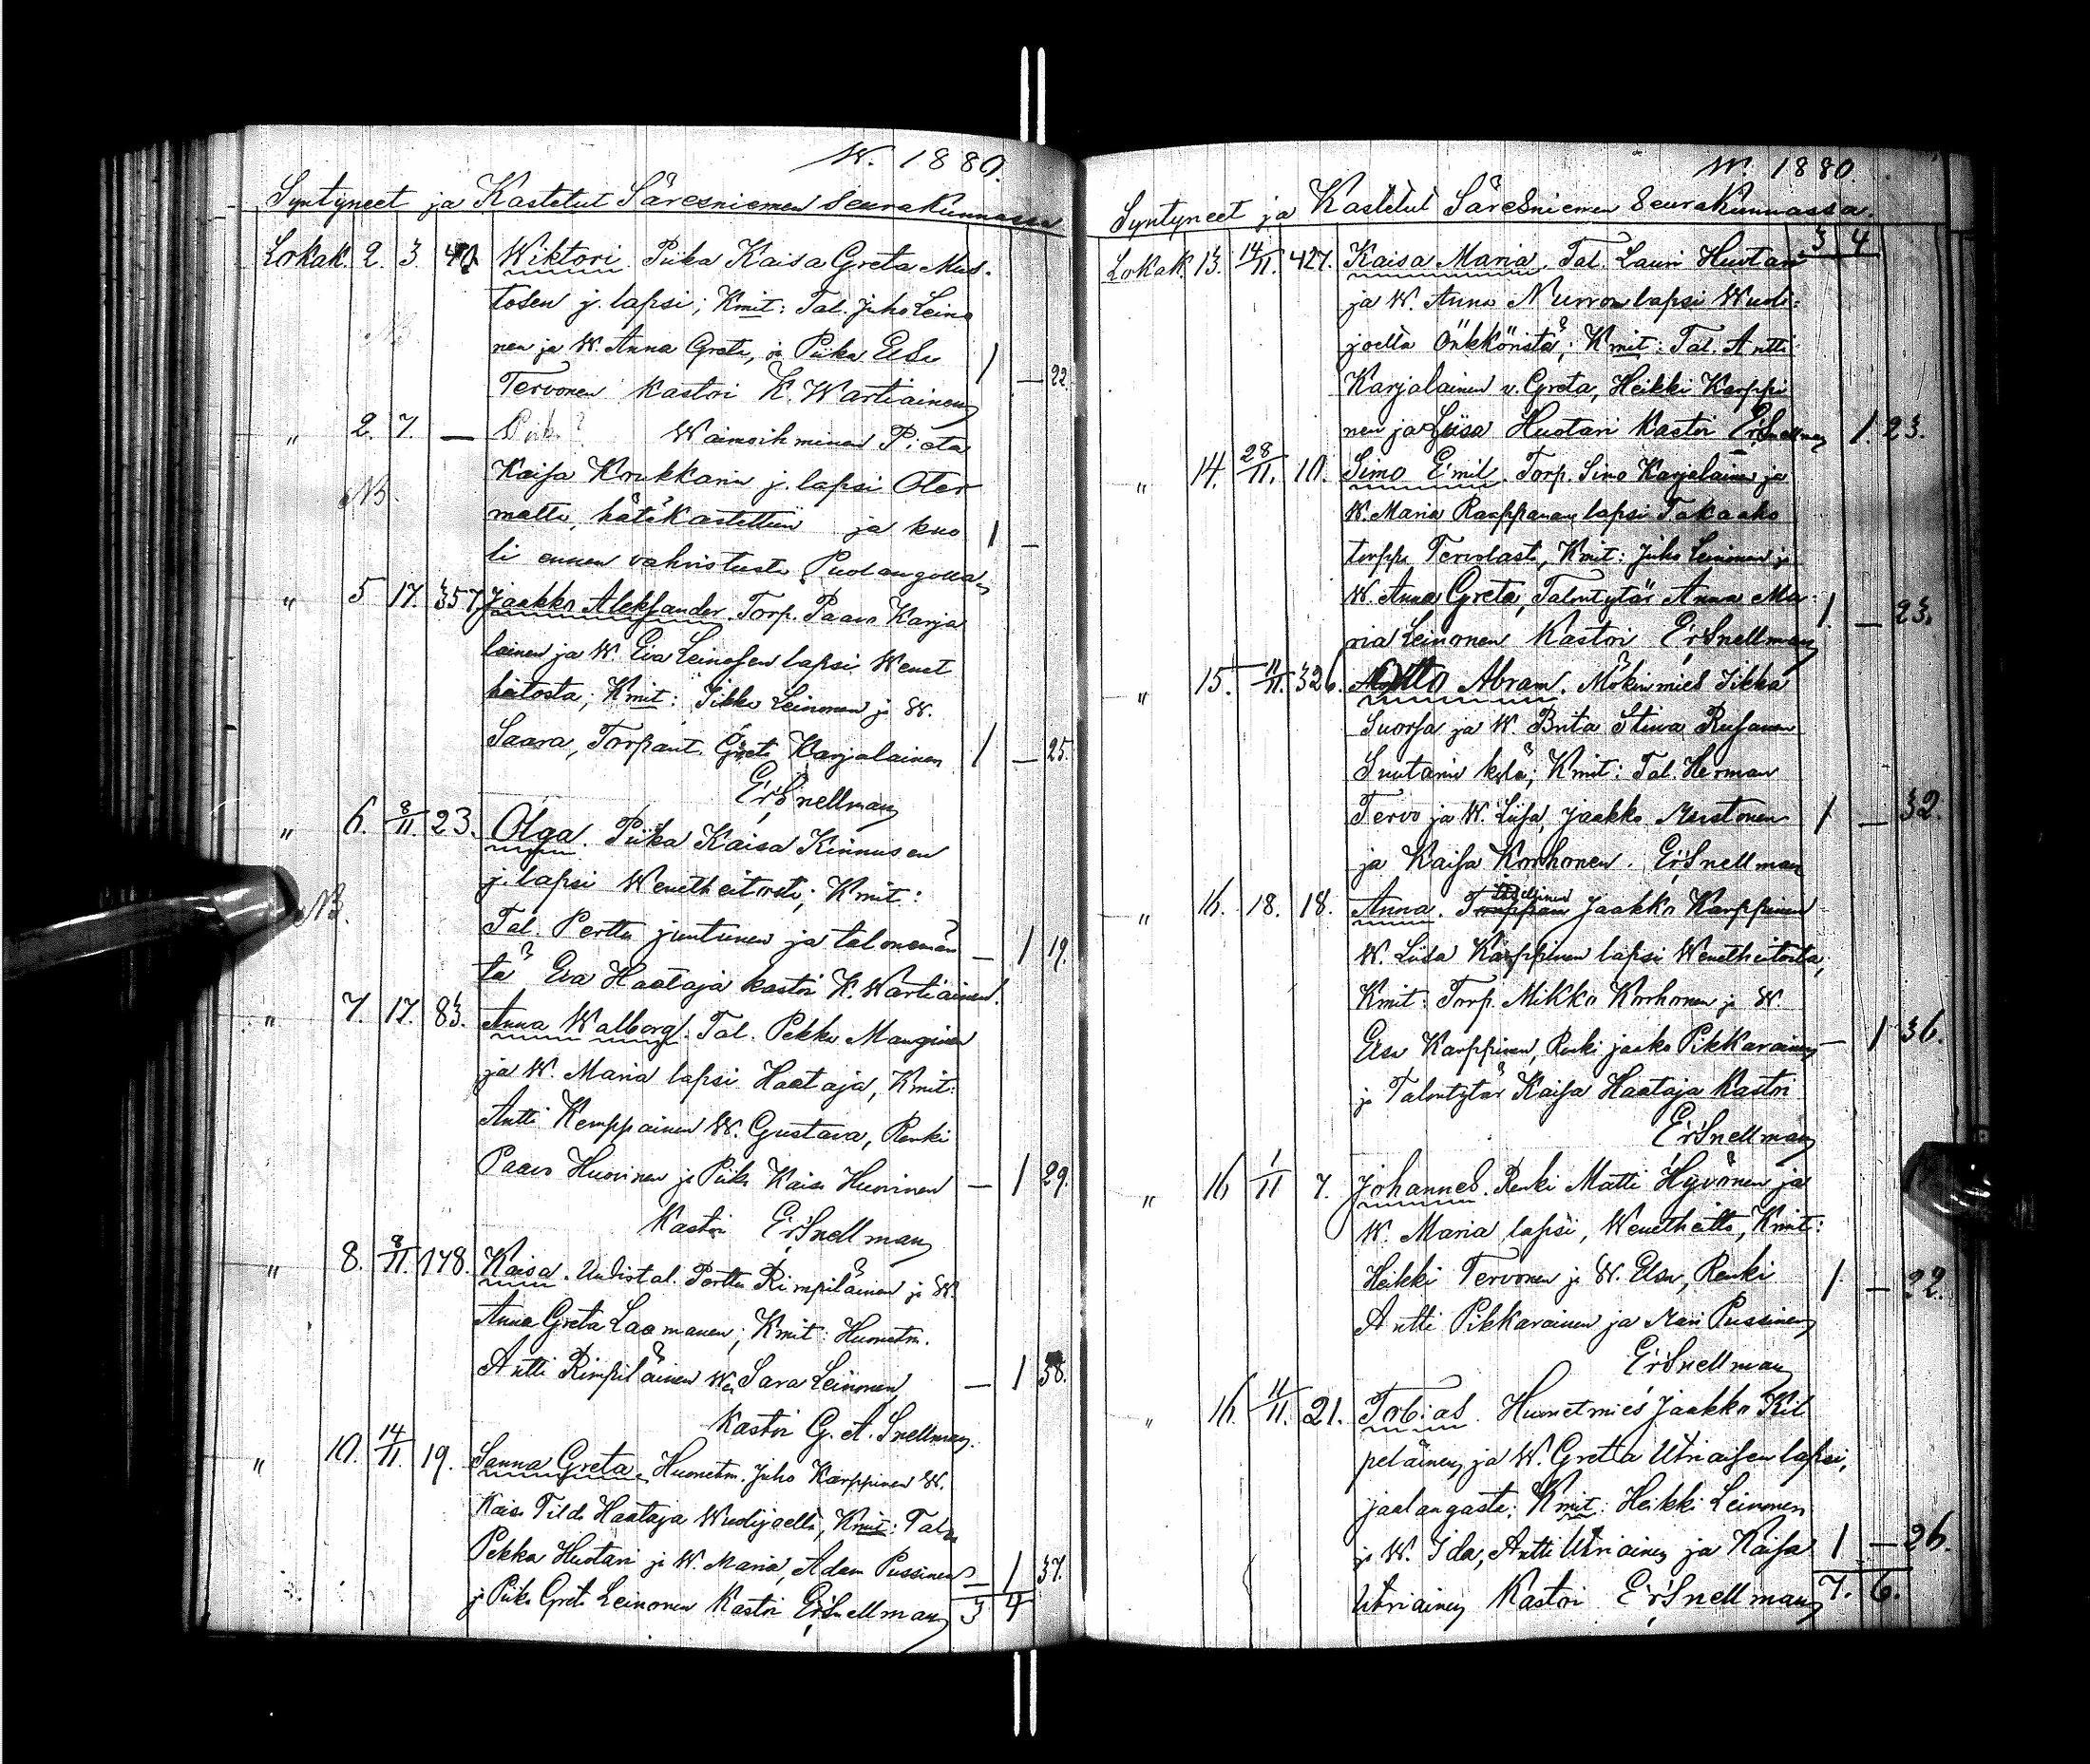 W. 1880.
Syntyneet ja Kastetut Säresniemen Seurakunnassa
Lokak. 2. 3. 40 Wiktori Piika Kaisa Greta Mus-
tosen j. lapsi; Kmit: Tal. Juho Leino
nen ja W. Anna Greta, ja Piika Elsa
Tervonen Kastoi K. Wartiainen 1 — 22.
" 2. 7. — Waimoihminen Prieta
NB. Kaisa Kuukkarin j. lapsi Oter
malta, hätäkastettiin ja kuo
li ennen vahvistusta Puolangalla 1 —
" 5 17. 357. Jaakko Aleksander. Torp. Paavo Karja
lainen ja W. Eva Leinosen lapsi Wenet
heitosta; Kmit: Iikka Leinonen ja W.
Saara, Torpant. Greta Karjalainen 1 — 25.
ErSnellman
" 6. 8/11 23. Olga. Piika Kaisa Kinnusen
NB. j. lapsi Wenetheitosta; Kmit:
Tal. Perttu juntunen ja talonemän
tä Eva Haataja kastoi K. Wartiainen. — 1 19.
" 7. 17. 83. Anna Walborg. Tal. Pekka Manginen
ja W. Maria lapsi Haataja, Kmit:
Antti Kemppainen W. Gustava, Renki
Paavo Huovinen ja Piika Kaisa Huovinen — 1 29.
Kastoi ErSnellman
" 8. 8/11. 148. Kaisa. Uudistal. Perttu Rimpiläinen ja W.
Anna Greta Laamanen; Kmit: Huonetm.
Antti Rimpiläinen Wa Sara Leinonen — 1 38.
Kastoi G. A. Snellman.
" 10. 14/11. 19. Sanna Greta. Huonetm. Juho Karppinen W.
Kaisa Tilda Haataja Wuolijoella, Kmit: Tal.
Pekka Huotari ja W. Maria, Adam Pussinen — 1 37.
ja Piika Greta Leinonen Kastoi ErSnellman 3 4
W. 1880.
Syntyneet ja Kastetut Säresniemen Seurakunnassa.
3 4
Lokak. 13. 14/11. 427. Kaisa Maria. Tal. Lauri Huotari
ja W. Anna Nurron lapsi Wuoli-
joella Önkköristä; Kmit: Tal. Antti
Karjalainen v. Greta, Heikki Karppi
nen ja Liisa Huotari Kastoi ErSnellman 1. 23.
" 14. 28/11. 10. Simo Emil. Torp. Simo Karjalainen ja
W. Maria Raappanan lapsi Takaaho
torppa Tervolasta, Kmit: Juho Leinonen ja
W. Anna Greta, Talontytär Anna Ma-
ria Leinonen Kastoi ErSnellman 1 — 23.
" 15. 11/11. 326. Otto Abram. Mökinmies Iikka
Suorsa ja W. Brita Stina Rusanen
Suutarin kylä; Kmit: Tal. Herman
Tervo ja W. Liisa, Jaakko Mustonen 1 — 32.
ja Kaisa Korhonen. ErSnellman
" 16. 18. 18. Anna. Jaakko Karppinen
W. Liisa Karppinen lapsi Wenetheitosta,
Kmit: Torp. Mikko Korhonen ja W.
Elsa Karppinen, Renki jaako Pikkarainen — 1 36.
ja Talontytär Kaisa Haataja Kastoi
ErSnellman
" 16 1/11 7. Johannes. Renki Matti Hyvönen ja
W. Maria lapsi, Wenetheitto, Kmit:
Heikki Tervonen ja W. Elsa, Renki 1. — 22.
Antti Pikkarainen ja Mari Pussinen
ErSnellman
" 16. 11/11. 21. Tobias. Huonetmies Jaakko Kil
peläinen ja W. Greta Utriaisen lapsi,
jaalangasta; Kmit: Heikki Leinonen
ja W. Ida, Antti Utriainen ja Kaisa 1 — 26.
Utriainen Kastoi ErSnellman 7. 6.